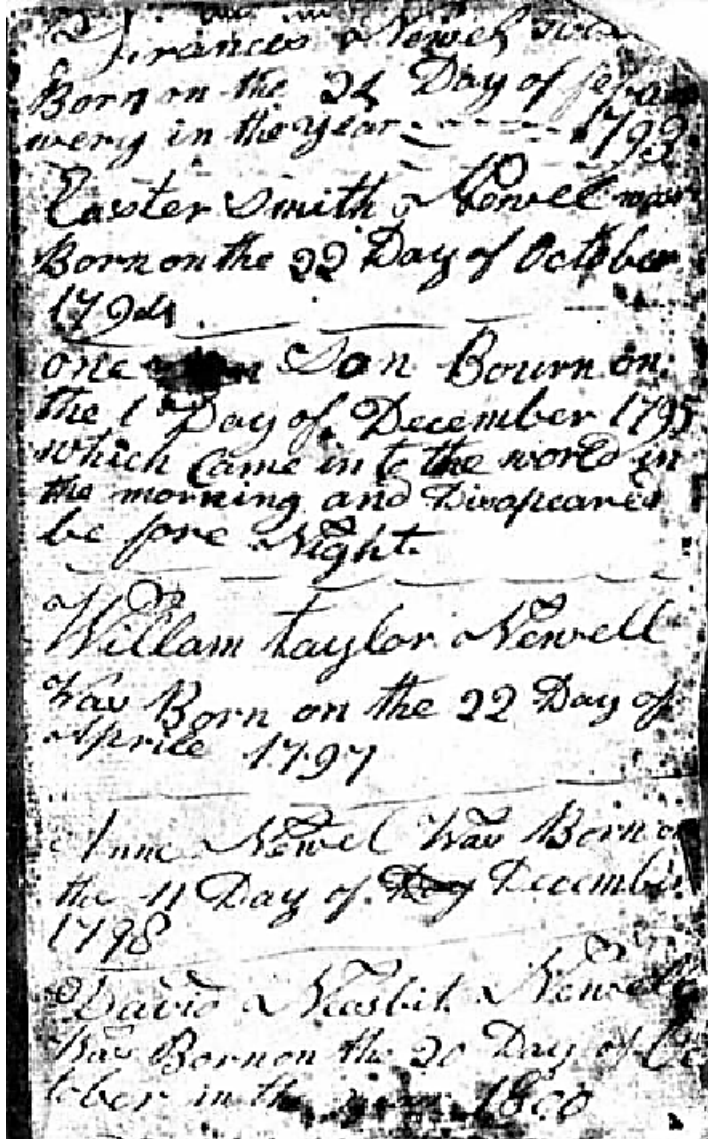 Frances Newel was
Born on the 24 Day of Jepa
wery in the year 1793
Easter Smith Newel was
Born on the 22 Day of October
1794
one Son Bourn on
the 1 Day of December 1795
which Came in to the world in
the morning and Disapeared
be fore Night
Willam Taylor Newell
Was Born on the 22 Day of
Aprile 1797
Anne Newel Was Born on
the 11 Day of Day December
1798
David Nesbit Newell
Was Born on the 20 Day of Oc
tober in the year 1800